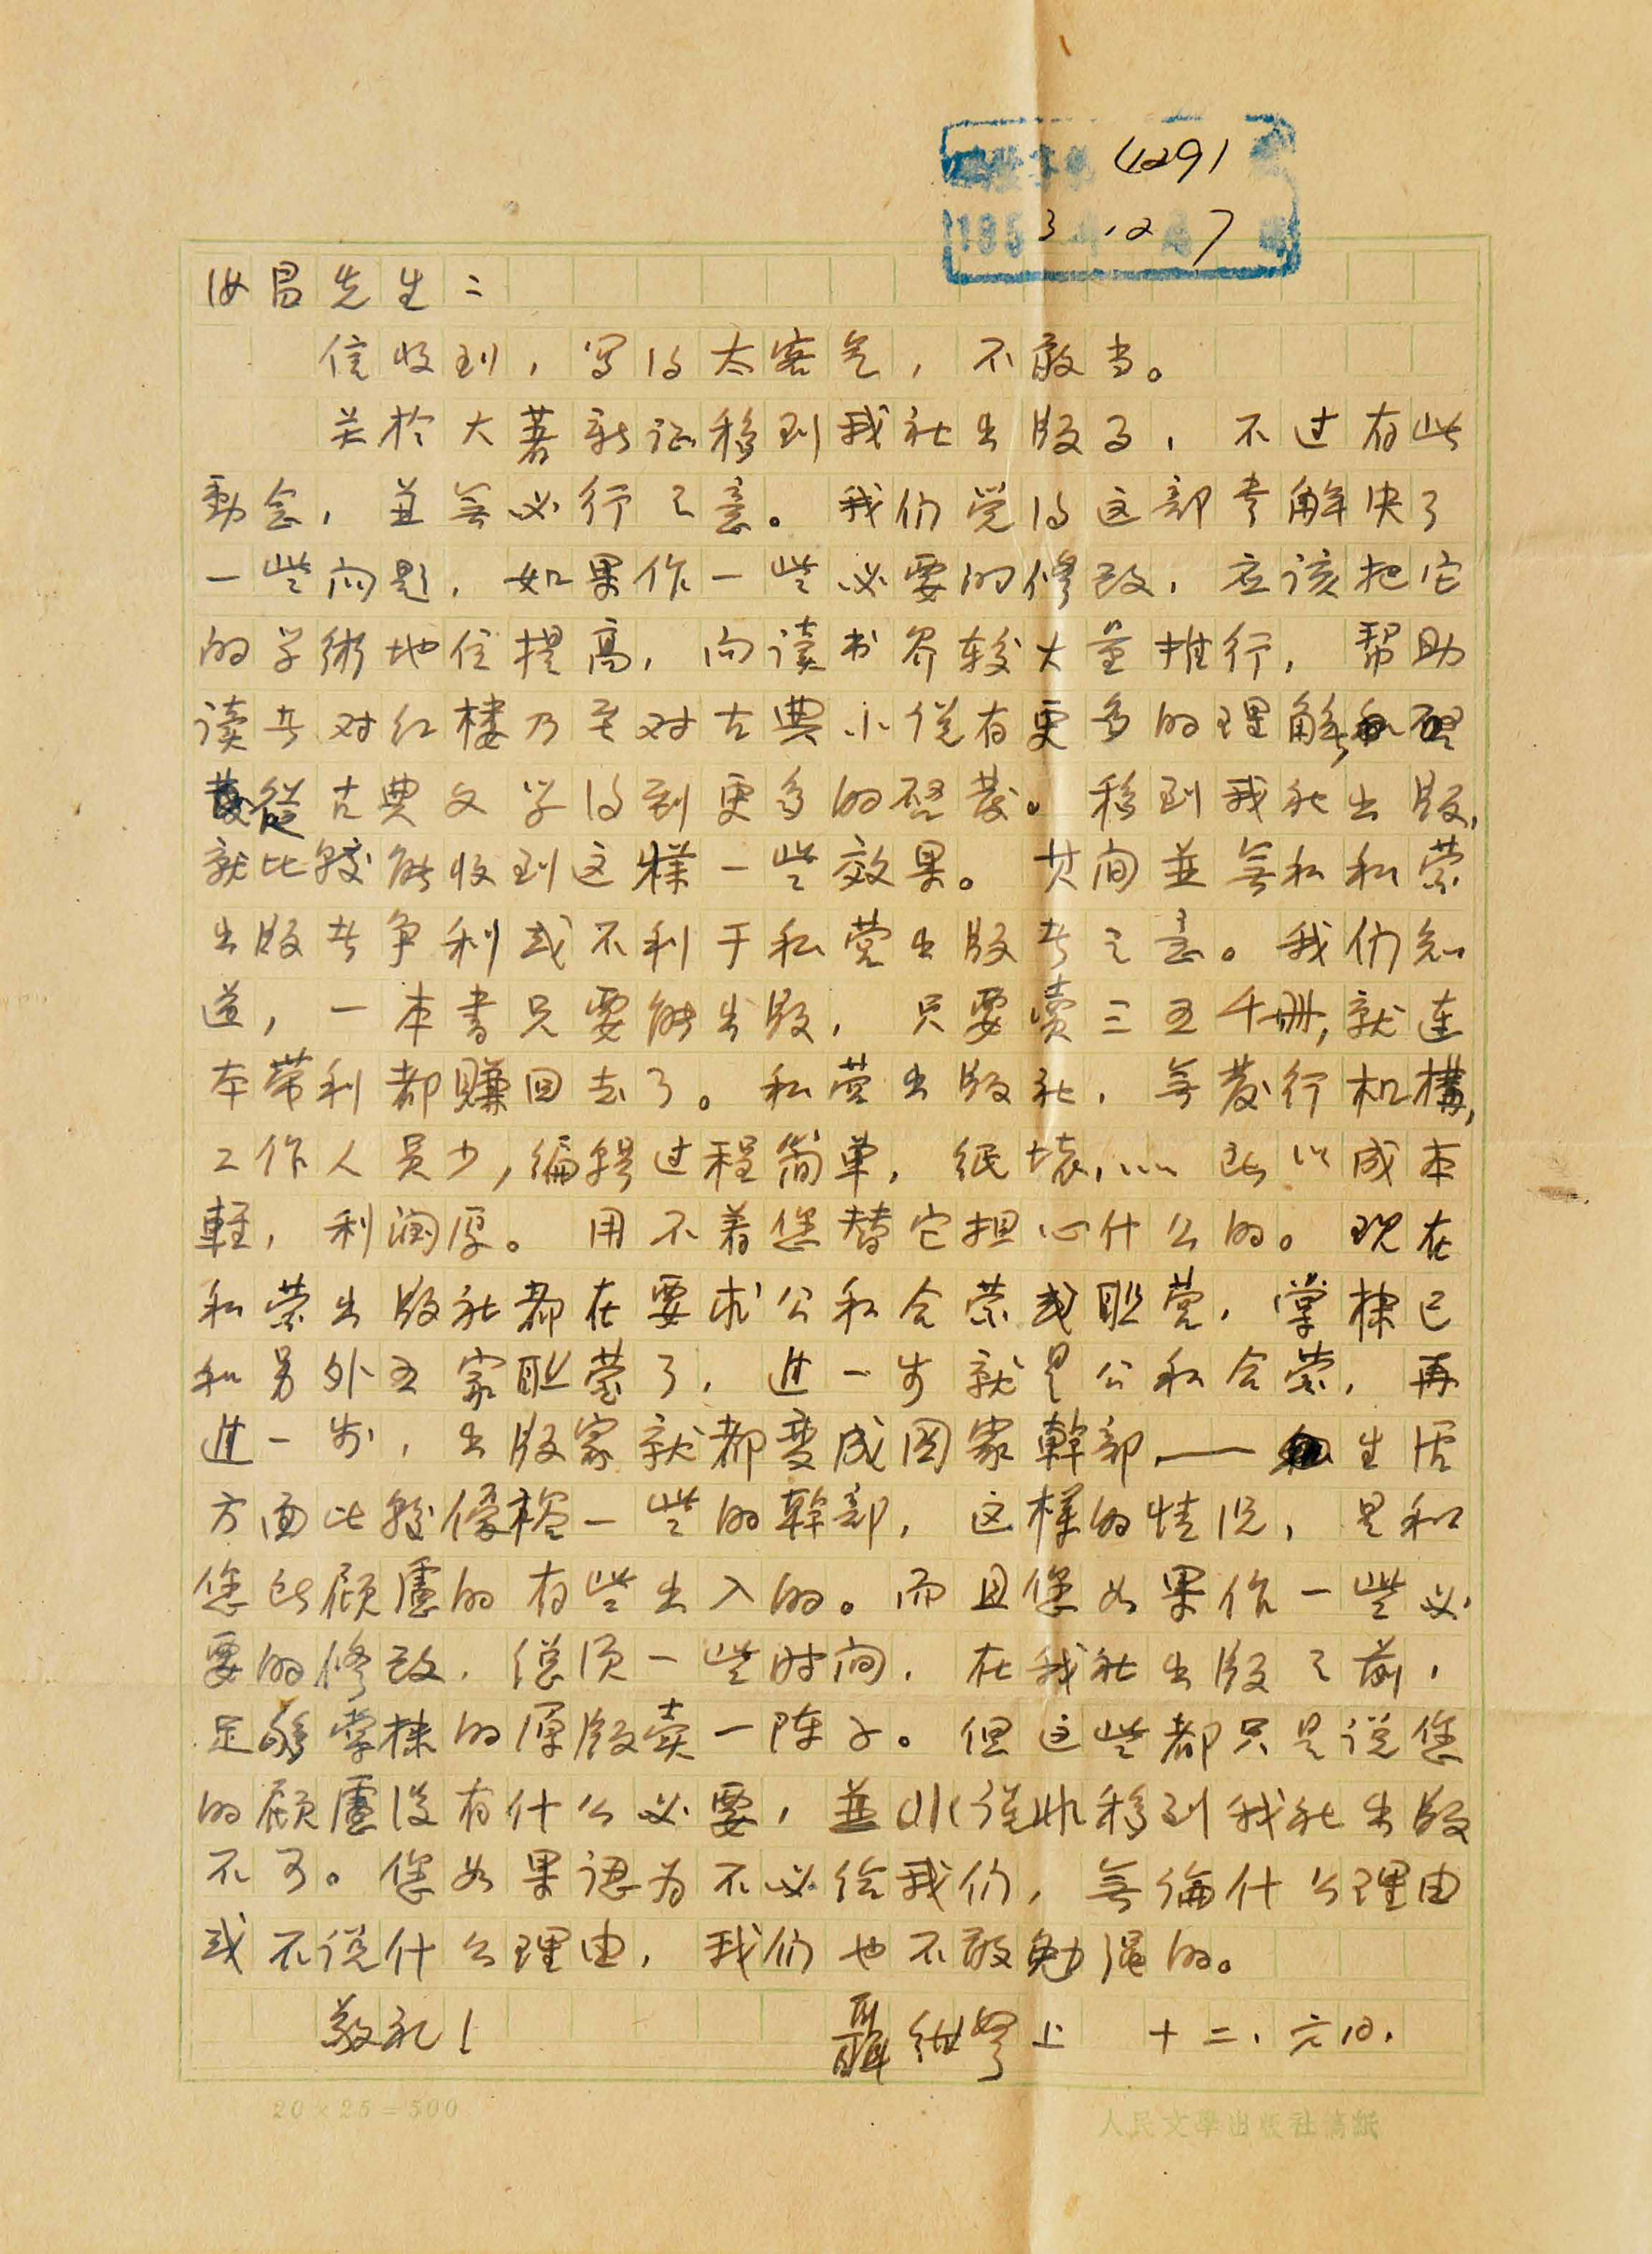 4291
1953.12 7
汝昌先生：
信收到，写得太客气，不敢当。
关於大著新证移到我社出版事，不过有些
動念，並無必行之意。我们觉得这部書解决了
一些问题，如果作一些必要的修改，应该把它
的学術地位提高，向读书界较大量推行，帮助
读者对红楼乃至对古典小说有更多的理解，
從古典文学得到更多的啓發。移到我社出版，
就比較能收到这樣一些效果。其间並無和私营
出版者争利或不利于私营出版者之意。我们知
道，一本書只要能出版，只要賣三五千册，就連
本带利都賺回去了。私营出版社，無發行机構，
工作人员少，编輯过程简单，纸壞，…… 所以成本
輕，利润厚。用不着您替它担心什么的。现在
私营出版社都在要求公私合营或联营，棠棣已
和另外五家联营了，进一步就是公私合营，再
进一步，出版家就都变成国家幹部，——生活
方面比較優裕一些的幹部，这樣的情况，是和
您所顾慮的有些出入的。而且您如果作一些必
要的修改，总须一些时间，在我社出版之前，
足够棠棣的原版卖一阵子。但这些都只是说您
的顾慮没有什么必要，並非说非移到我社出版
不可。您如果認为不必给我们，無論什么理由
或不说什么理由，我们也不敢勉强的。
敬礼！ 聶绀弩上 十二、六日、
20×25=500 人民文學出版社稿紙